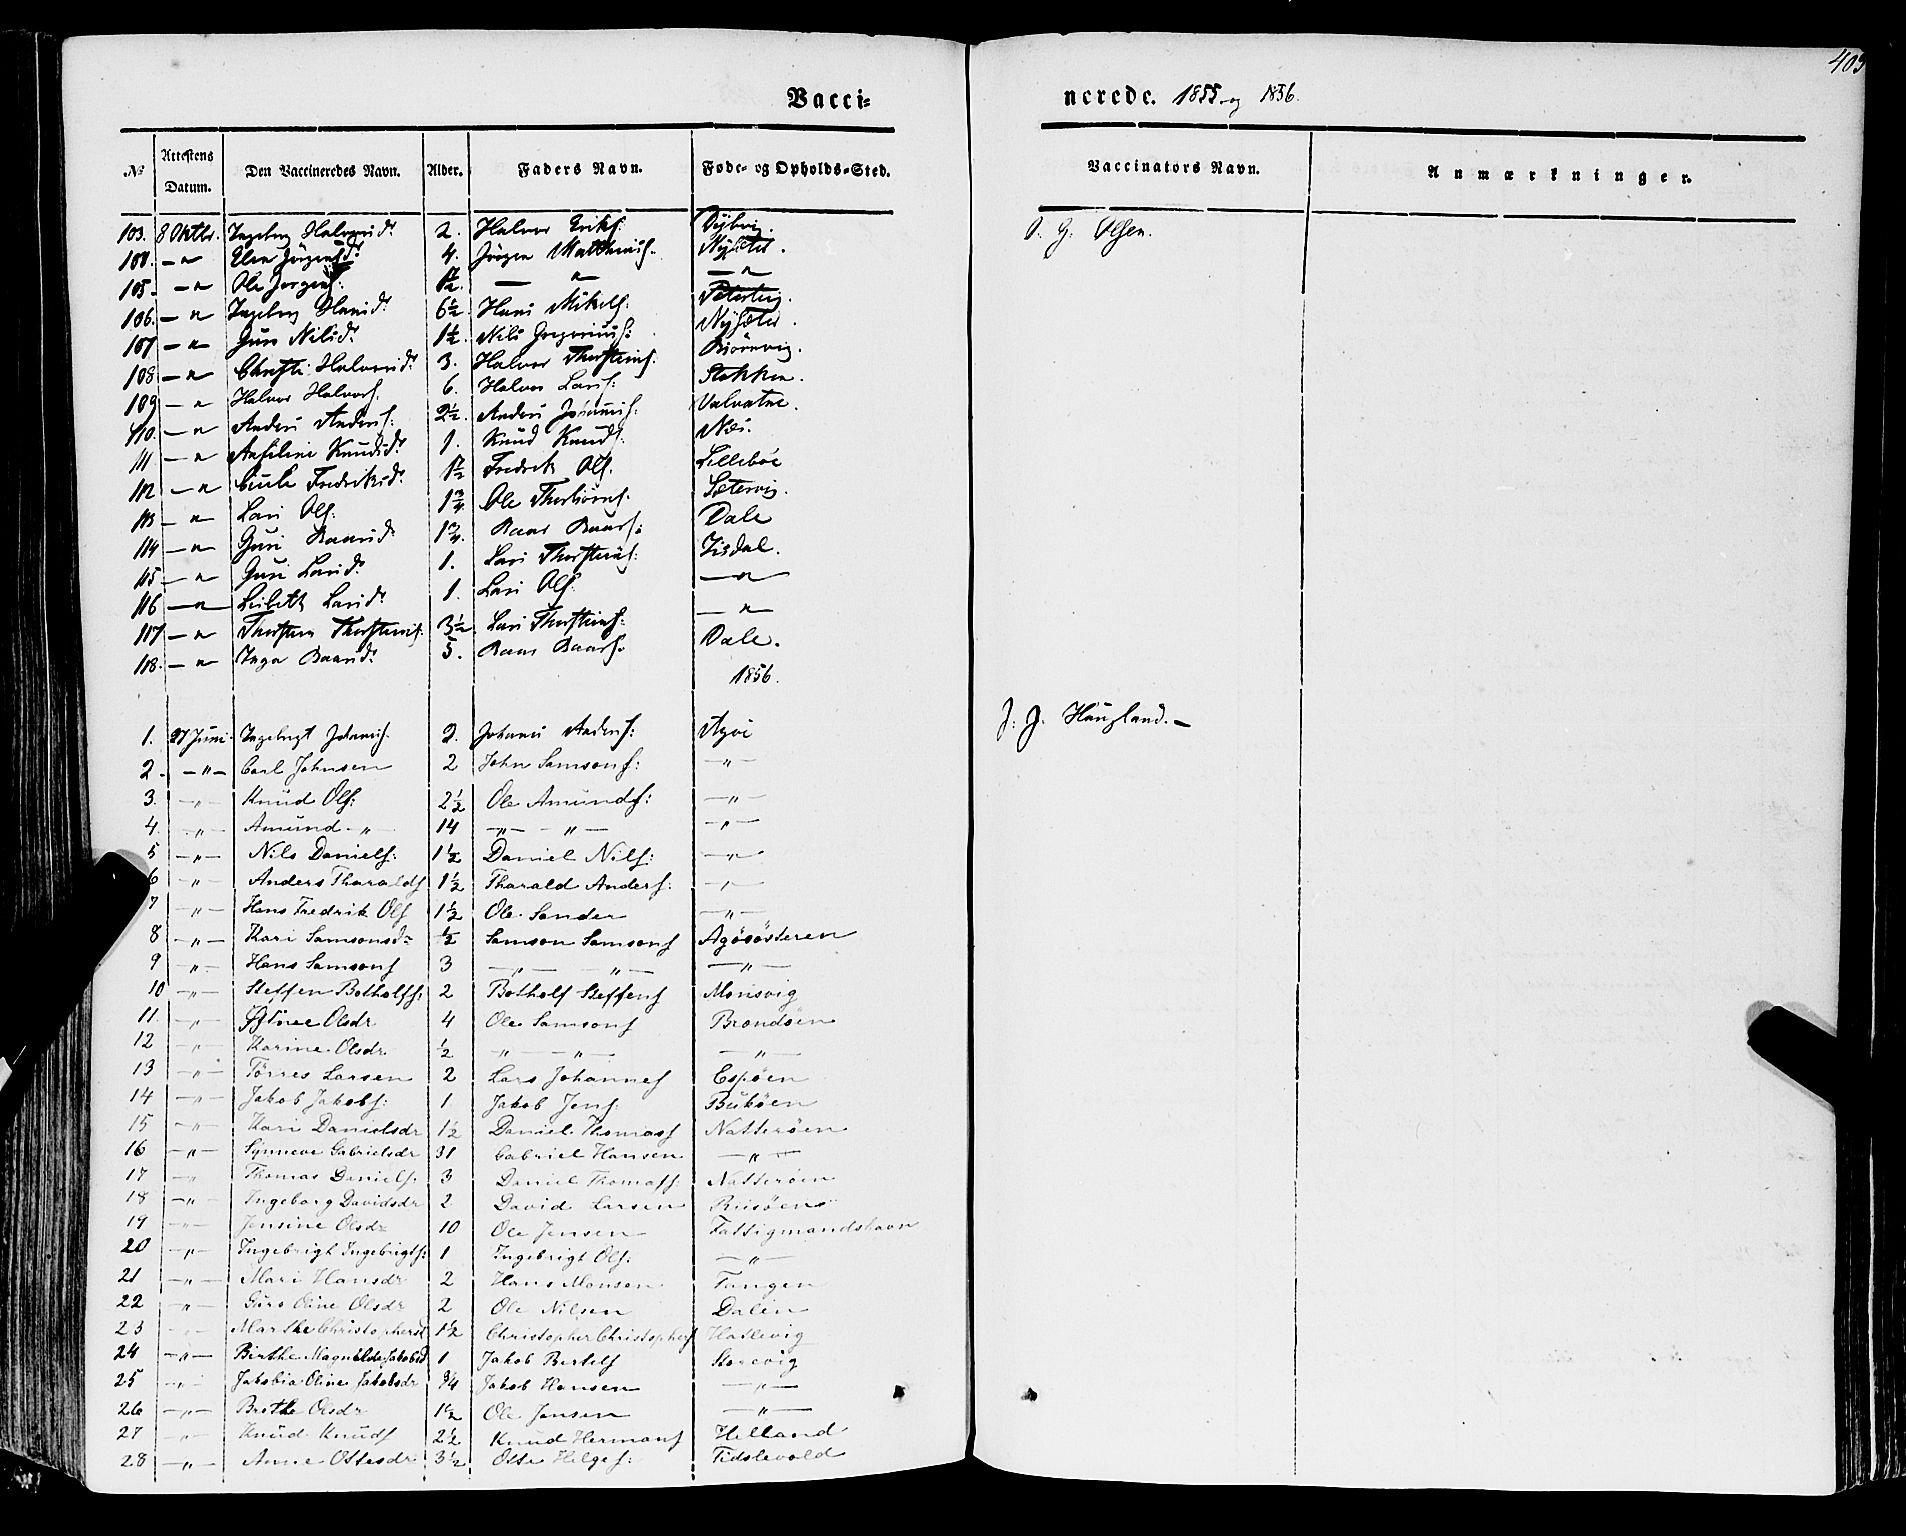 Vacci-
No
Attestens Datum.
Den Vaccineredes Navn.
Alder.
Faders Navn.
Føde- og Opholds-Sted.
103. 8 Oktbr. Ingeborg Halvorsd. 2. Halvor Eriks:
104. — " Elen Jørgensd. 4. Jørgen Matthias. Nysæter.
105. — " Ole Jørgens: 1½. — " — "
106. — " Ingeborg Hansd. 6½ Hans Mikels:
107 — " Guro Nilsd. 1½. Nils Gregorius: Nysæter.
108 — " Christi Halvorsd. 3. Halvor Thorsteins: Bjørnevig.
109 — " Halvor Halvors. 6. Halvor Lars: Stokken.
110. — " Anders Anders: 2½. Anders Johannes: Valvatne.
111 — " Knudsd. 1. Knud Knuds: Næs.
112 — " Fredriksd. 1½ Fredrik Ols. Lillebøe
113 — " Lars Ols. 1¾ Ole Thorbjørns: Sætervig.
114 — " Guri Baarsd. 1¾. Baar Baars: Dale
115 — " Guri Larsd. 1. Lars Thorsteins: Iisdal.
116 — " Lisbeth Larsd. 1. Lars Ols. — "
117 — " Thorsten Thorsteins: 3½ Lars Thorsteins: — "
118. — " Inga Baarsd. 5. Baar Baars. Dale.
1856.
1. 27 Juni Ingebrigt Johannes. 2. Johannes Anders: Agøe
2. — " — Carl Johnsen 2 John Samsons: — " —
3. — " — Knud Ols: 2½ Ole Amunds: — " —
4. — " — Amund — " — 14 — " — — " — — " —
5 — " — Nils Daniels: 1½ Daniel Nils: — " —
6 — " — Anders Tharalds 1½ Tharald Anders: — " —
7 — " — Hans Fredrik Ols 1½ Ole Sander — " —
8 — " — Kari Samsonsdr ½ Samson Samsons Agøøsteren
9 — " — Hans Samsons 3 — " — — " — — " —
10 — " — Steffen Botholfs: 2 Botholf Steffens Monsvig
11. — " — Olsdr 4 Ole Samsons Brandøen
12 — " — Karine Olsdr ½ — " — — " — — " —
13 — " — Tørres Larsen 2 Lars Johannes Espøen
14 — " — Jakob Jakobs: 1 Jakob Jens: Bukøen
15 — " — Kari Danielsdr 1½ Daniel Thomas Natterøen
16 — " — Synneve Gabrielsdr 31 Gabriel Hansen — " —
17 — " — Thomas Daniels: 3 Daniel Thomass: Natterøen
18 — " — Ingeborg Davidsdr 2 David Larsen
19 — " — Jensine Olsdr 10 Ole Jensen Fattigmandshavn
20 — " — Ingebrigt Ingebrigts: 1 Ingebrigt Ols: — " —
21 — " — Mari Hansdr 2 Hans Monsen Tangen
22 — " — Guro Oline Olsdr 2 Ole Nilsen Dalen
23 — " — Marthe Christophersd 1½ Christopher Christophers Hatlevig
24 — " — Birthe Magnilde Jakobsd 1 Jakob Bertels Storevig
25 — " — Jakobia Oline Jakobsdr ¾ Jakob Hansen — " —
26 — " — Brithe Olsdr 1½ Ole Jensen — " —
27 — " — Knud Knuds 2½ Knud Hermans Helland
28 — " — Anne Ottesdr 3½ Otte Helges: Tidslevold
403
nerede. 1855 og 1856.
Vaccinators Navn.
Anmærkninger.
O. G. Olsen.
J. J. Haugland. —